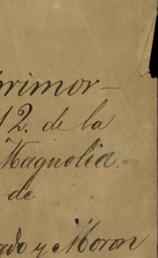 rimor-
12. de la
Magnolia.
de
ado y Moron